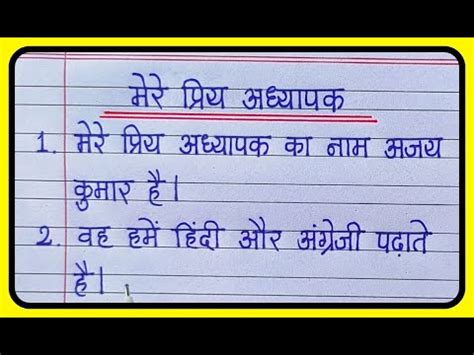 मेरे प्रिय अध्यापक
1. मेरे प्रिय अध्यापक का नाम अजय
कुमार है।
2. वह हमें हिंदी और अंग्रेजी पढ़ाते
है।